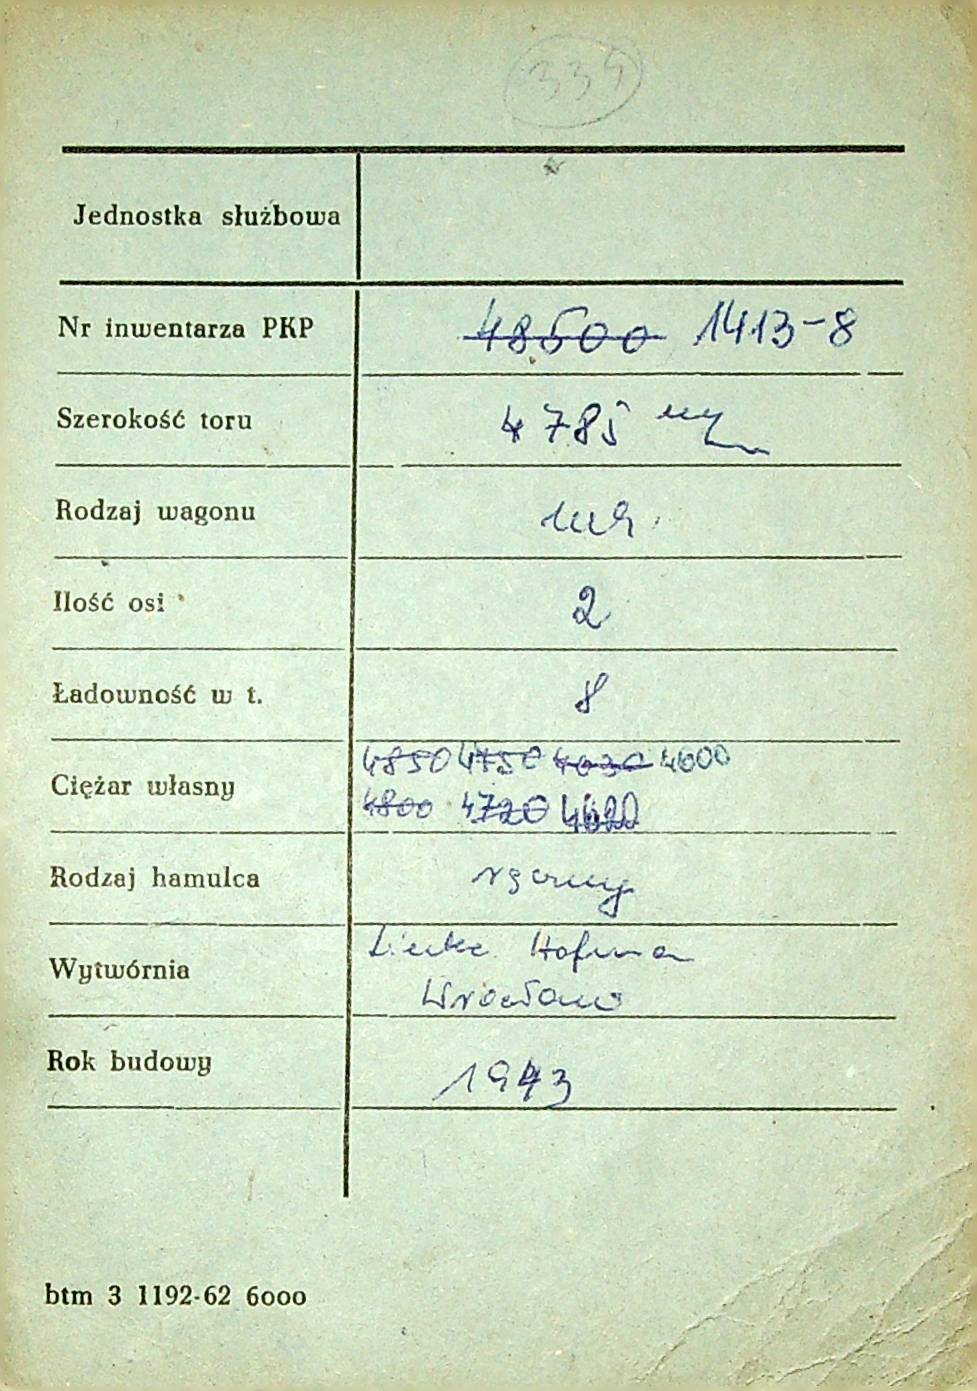 339
Jednostka służbowa
Nr inwentarza PKP 48500 1413-8
Szerokość toru 4785
Rodzaj wagonu
Ilość osi 2
Ładowność w t. 8
Ciężar własny 4850 4750 4030 4600
4800 4720 4620
Rodzaj hamulca ręczny
Wytwórnia Linke Hofman
Wrocław
Rok budowy 1943
btm 3 1192-62 6000